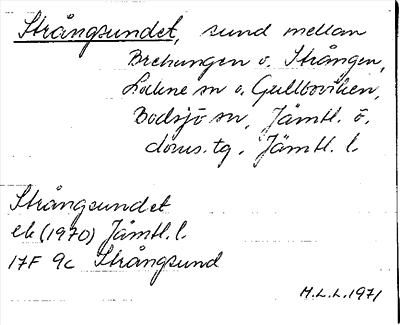 Strångsundet, sund mellan
Brekungen o. Strången,
Lockne sn o. Gullboviken,
Bodsjö sn, Jämtl. ö.
doms.tg. Jämtl. l.
Strångsundet
ek (1970) Jämtl. l.
17F 9c Strångsund
M.L.L. 1971